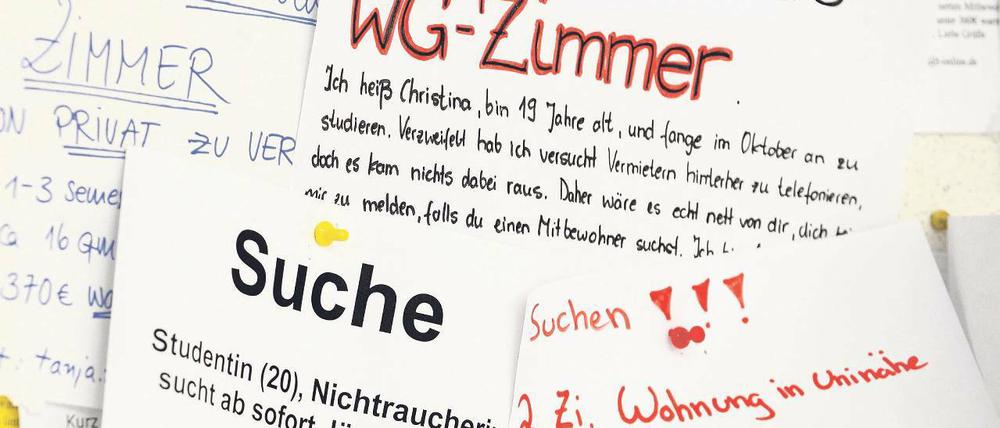 ZIMMER
PRIVAT ZU VER
1-3 Seme
ca 16 qm
370€
tanja.
WG-Zimmer
Ich heiß Christina, bin 19 Jahre alt, und fange im Oktober an zu
studieren. Verzweifelt hab ich versucht Vermietern hinterher zu telefonieren,
doch es kam nichts dabei raus. Daher wäre es echt nett von dir, dich
mir zu melden, falls du einen Mitbewohner suchst. Ich
Suche
Studentin (20), Nichtraucheri
sucht ab sofort
Suchen !!!
2 Zi. Wohnung in Uninähe
Kurz
Liebe Grüße
@t-online.de